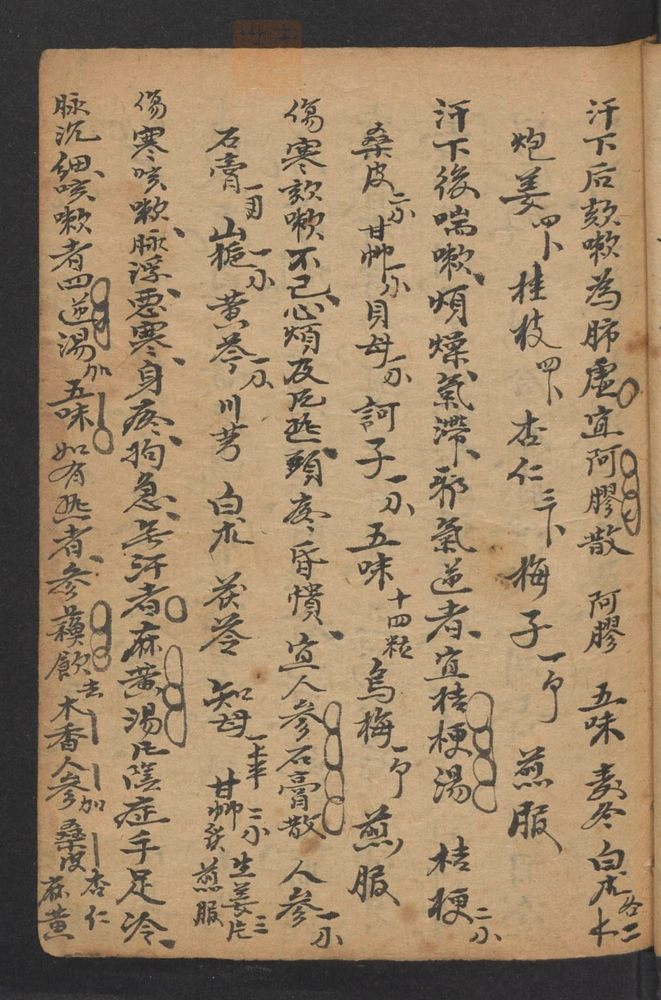 汗下后欬嗽為肺虛宜阿膠散 阿膠 五味 麦冬 白朮各二卜
炮姜四卜 桂枝四卜 杏仁三卜 梅子一个 煎服
汗下後喘嗽煩燥氣滯邪氣逆者宜桔梗湯 桔梗二分
桑皮二分 甘艸一分 貝母一分 訶子一分 五味十四粒 烏梅一个 煎服
傷寒欬嗽不已心煩及凡热頭疼昏憒宜人參石膏散 人參一分
石膏 山梔一分 黄芩一分 川芎 白朮 茯苓 知母 甘艸 生姜三片 煎服
傷寒咳嗽脉浮惡寒身疼拘急無汗者麻黄湯凡陰症手足冷
脉沉細咳嗽者四逆湯加五味如有热者參蘓飲去木香人參加桑皮杏仁麻黄